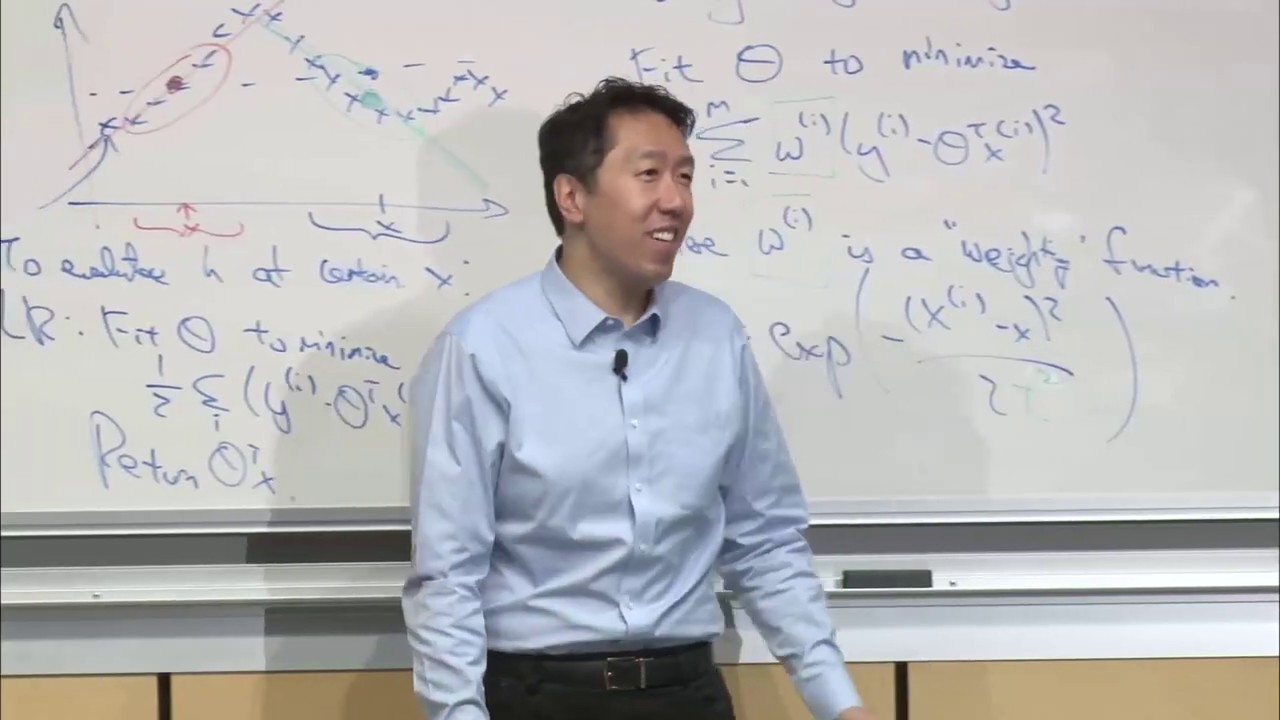 To evaluate h at certain x:
LR: Fit Θ to minimize
1/2 Σ_i (y^(i) - Θ^T x^(
Return Θ^T x
Fit Θ to minimize
M
Σ w^(i) (y^(i) - Θ^T x^(i))^2
i=1
w^(i) is a "weighting" function.
exp ( - (x^(i) - x)^2 / 2τ^2 )
x
x